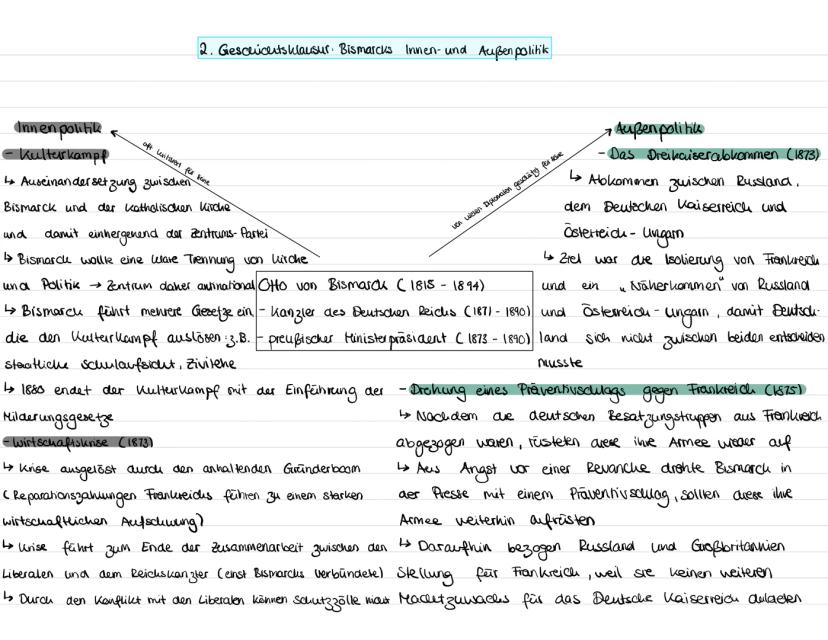 2. Geschichtsklausur: Bismarcks Innen- und Außenpolitik
Innenpolitik
- Kulturkampf
↳ Auseinandersetzung zwischen
Bismarck und der katholischen Kirche
und damit einhergehend der Zentrums-Partei
↳ Bismarck wollte eine klare Trennung von Kirche
und Politik → Zentrum daher antinational
↳ Bismarck führt mehrere Gesetze ein,
die den Kulturkampf auslösen: z.B.
staatliche Schulaufsicht, Zivilehe
↳ 1880 endet der Kulturkampf mit der Einführung der
Milderungsgesetze
- Wirtschaftskrise (1873)
↳ Krise ausgelöst durch den anhaltenden Gründerboom
(Reparationszahlungen Frankreichs führen zu einem starken
wirtschaftlichen Aufschwung)
↳ Krise führt zum Ende der Zusammenarbeit zwischen den
Liberalen und dem Reichskanzler (einst Bismarcks Verbündete)
↳ Durch den Konflikt mit den Liberalen können Schutzzölle nicht
oft kritisiert für seine
von vielen Diplomaten geschätzt für seine
Otto von Bismarck (1815 - 1894)
- Kanzler des Deutschen Reichs (1871 - 1890)
- preußischer Ministerpräsident (1873 - 1890)
Außenpolitik
- Das Dreikaiserabkommen (1873)
↳ Abkommen zwischen Russland,
dem Deutschen Kaiserreich und
Österreich - Ungarn
↳ Ziel war die Isolierung von Frankreich
und ein "Näherkommen" von Russland
und Österreich - Ungarn, damit Deutsch-
land sich nicht zwischen beiden entscheiden
musste
- Drohung eines Präventivschlags gegen Frankreich (1875)
↳ Nachdem die deutschen Besatzungstruppen aus Frankreich
abgezogen waren, rüsteten diese ihre Armee wieder auf
↳ Aus Angst vor einer Revanche drohte Bismarck in
der Presse mit einem Präventivschlag, sollten diese ihre
Armee weiterhin aufrüsten
↳ Daraufhin bezogen Russland und Großbritannien
Stellung für Frankreich, weil sie keinen weiteren
Machtzuwachs für das Deutsche Kaiserreich duldeten